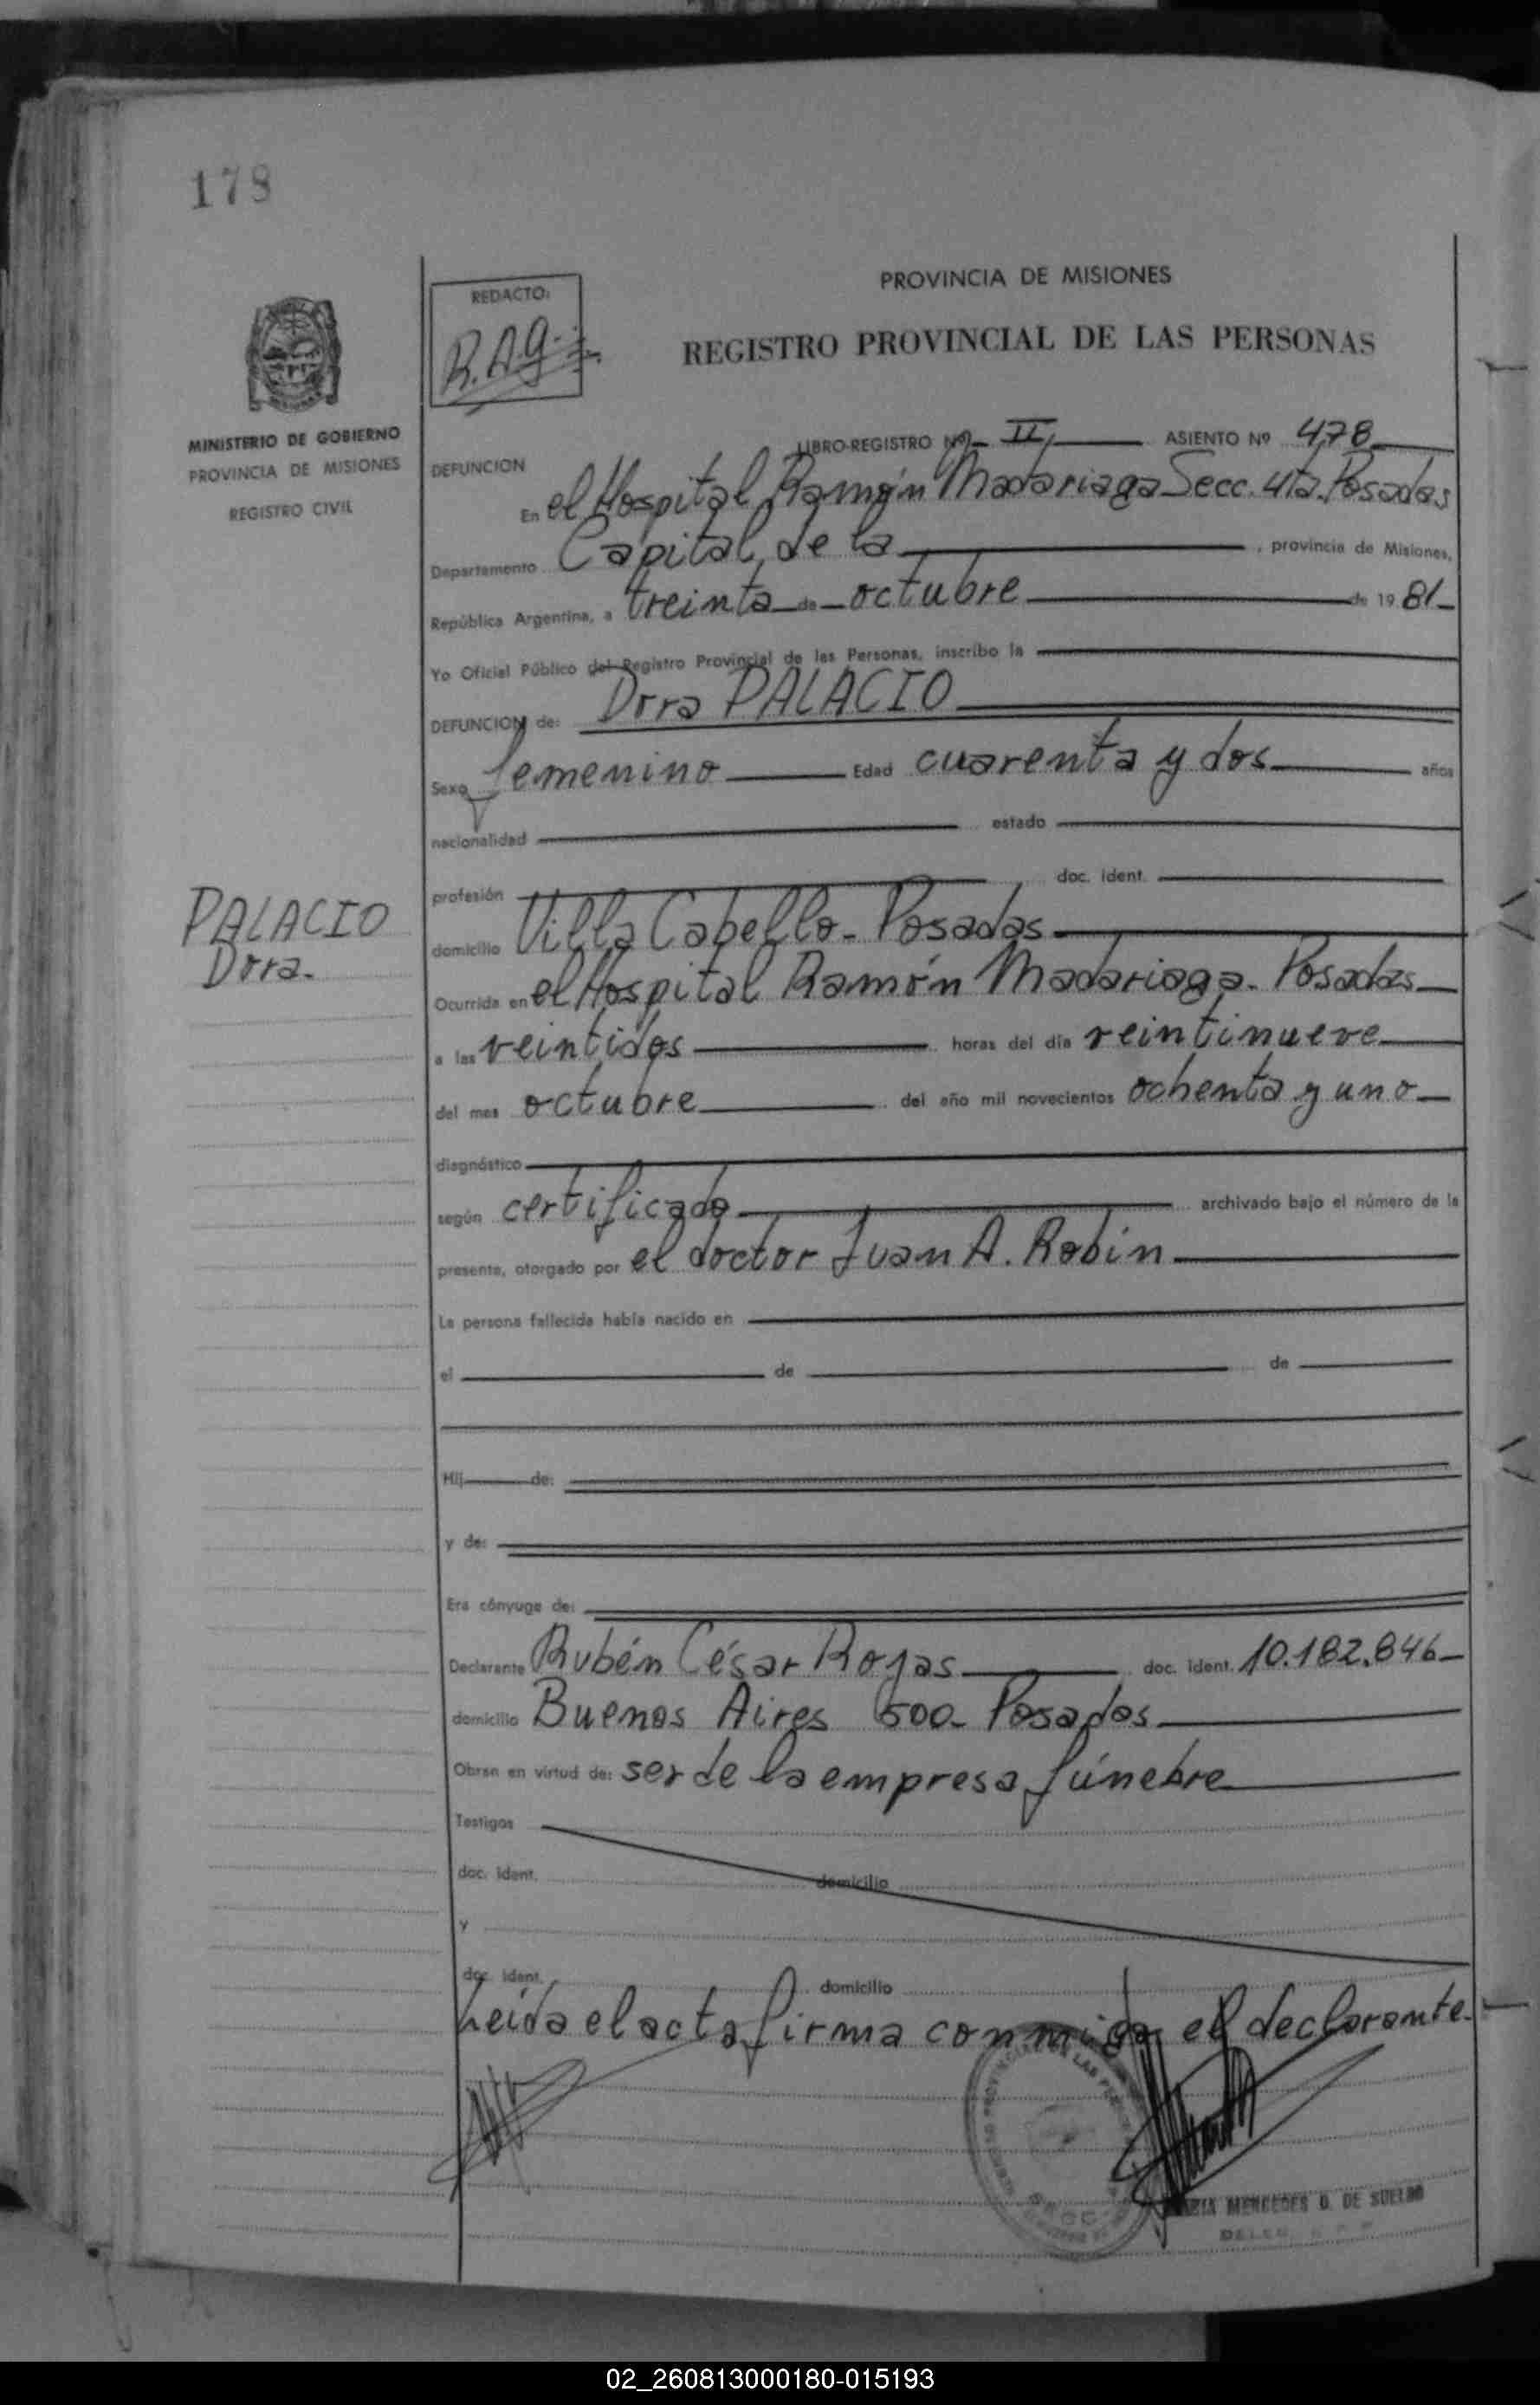 178
PROVINCIA DE MISIONES
REDACTO:
R.A.G.
REGISTRO PROVINCIAL DE LAS PERSONAS
MINISTERIO DE GOBIERNO
PROVINCIA DE MISIONES
REGISTRO CIVIL
LIBRO-REGISTRO Nº II ASIENTO Nº 478
DEFUNCION
En el Hospital Ramón Madariaga Secc. 4ta. Posadas
Departamento Capital de la , provincia de Misiones,
República Argentina, a treinta de octubre de 19 81
Yo Oficial Público del Registro Provincial de las Personas, inscribo la
DEFUNCION de: Dora PALACIO
Sexo femenino Edad cuarenta y dos años
nacionalidad estado
profesión doc. ident.
PALACIO
Dora.
domicilio Villa Cabello - Posadas
Ocurrida en el Hospital Ramón Madariaga - Posadas
a las veintidos horas del día veintinueve
del mes octubre del año mil novecientos ochenta y uno
diagnóstico
según certificado archivado bajo el número de la
presente, otorgado por el doctor Juan A. Robin
La persona fallecida había nacido en
el de de
Hij de:
y de:
Era cónyuge de:
Declarante Rubén César Rojas doc. ident. 10.182.846
domicilio Buenos Aires 500 - Posadas
Obran en virtud de: ser de la empresa fúnebre
Testigos
doc. ident. domicilio
y
doc. ident. domicilio
Leída el acta firma conmigo el declarante.
MERCEDES DE
02_260813000180-015193